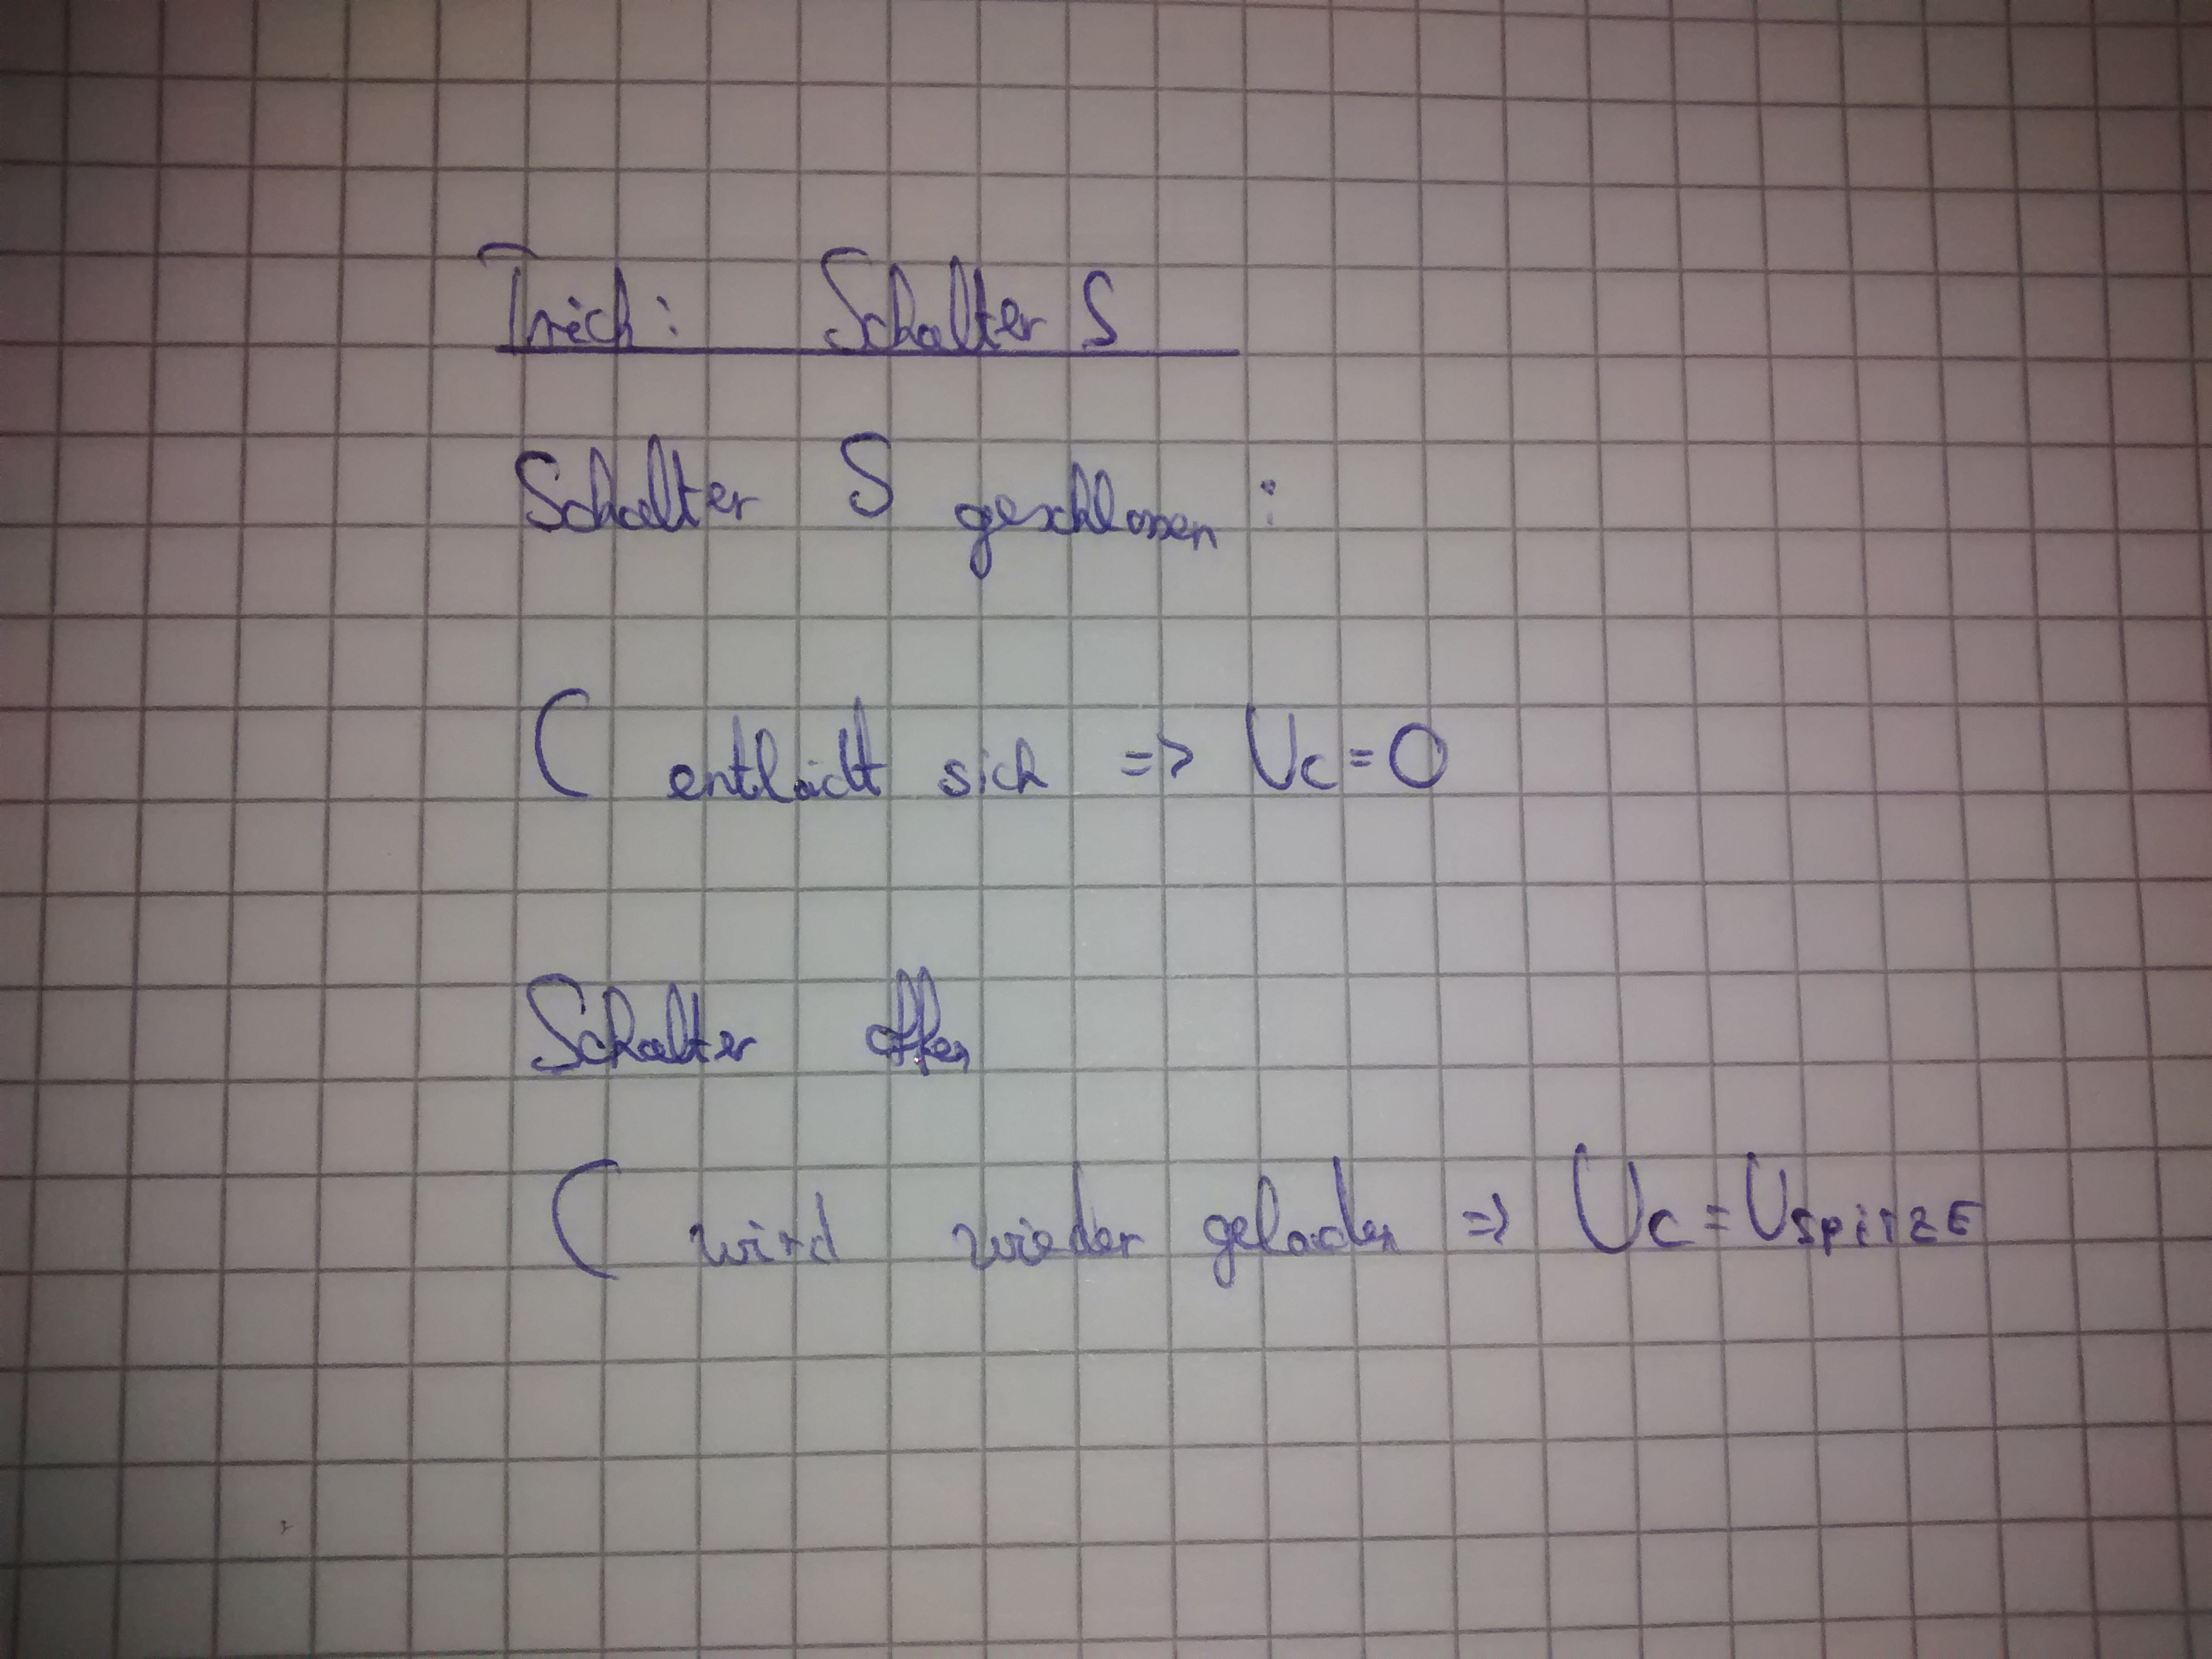 Trick: Schalter S
Schalter S geschlossen:
C entlädt sich => Uc=0
Schalter offen
C wird wieder geladen => Uc=USPITZE